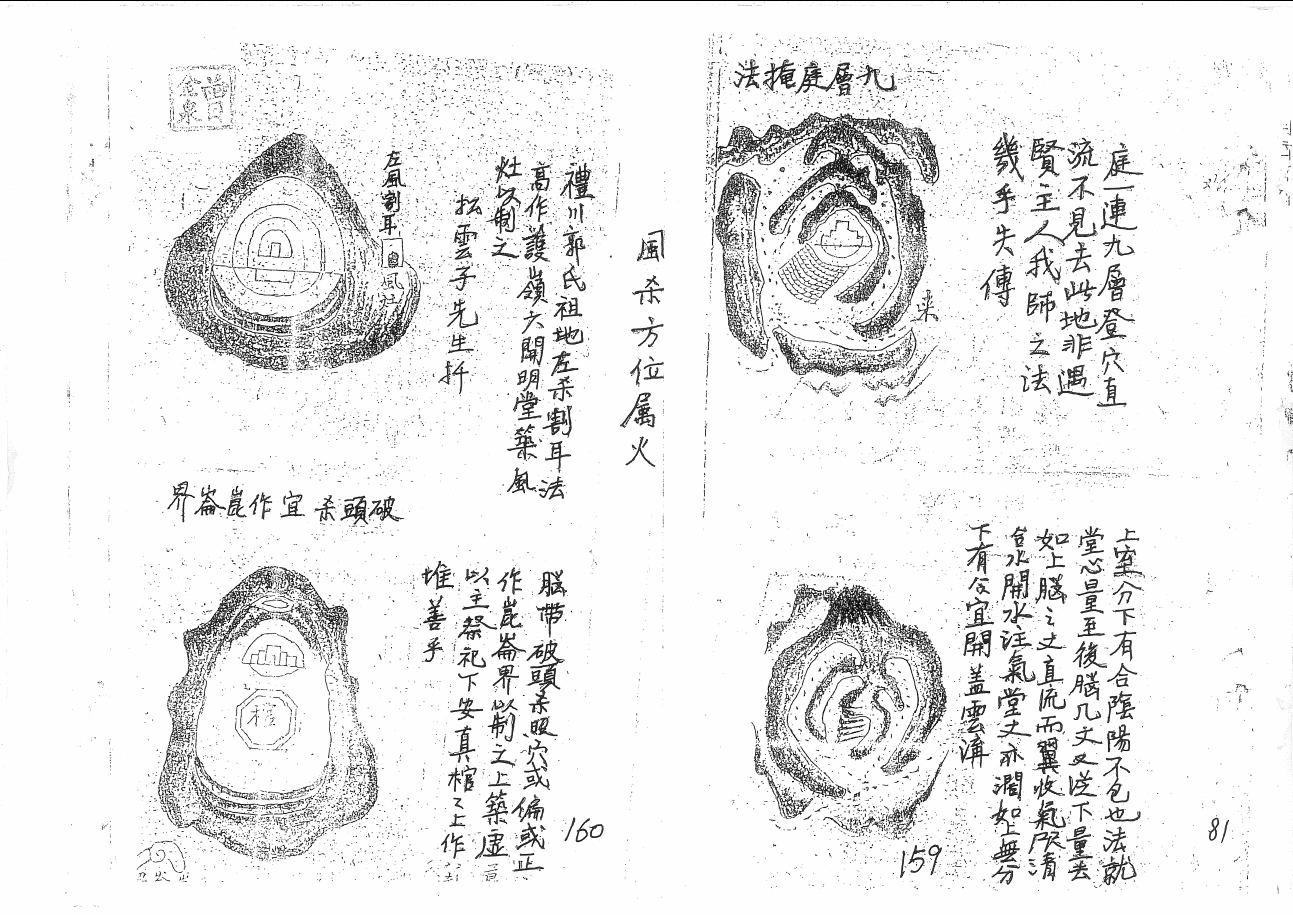 九層庭掩法
庭一連九層登穴直
流不見去此地非遇
賢主人我師之法
幾乎失傳
来
上室分下有合陰陽不包也法就
堂心量至後腦几丈又从下量去
如上腦之丈直流而翼收氣
水開水注氣堂丈亦濶如上無分
下有分宜開蓋雲溝
81
159
風杀方位属火
曾金泉
左風割耳
風灶
禮川郭氏祖地左杀割耳法
高作護嶺大開明堂築風
灶以制之
松雲子先生扦
破頭杀宜作崑崙界
腦帶破頭杀照穴或偏或正
作崑崙界以制之上築虛
以主祭祀下安真棺之上作
堆善乎
棺
160